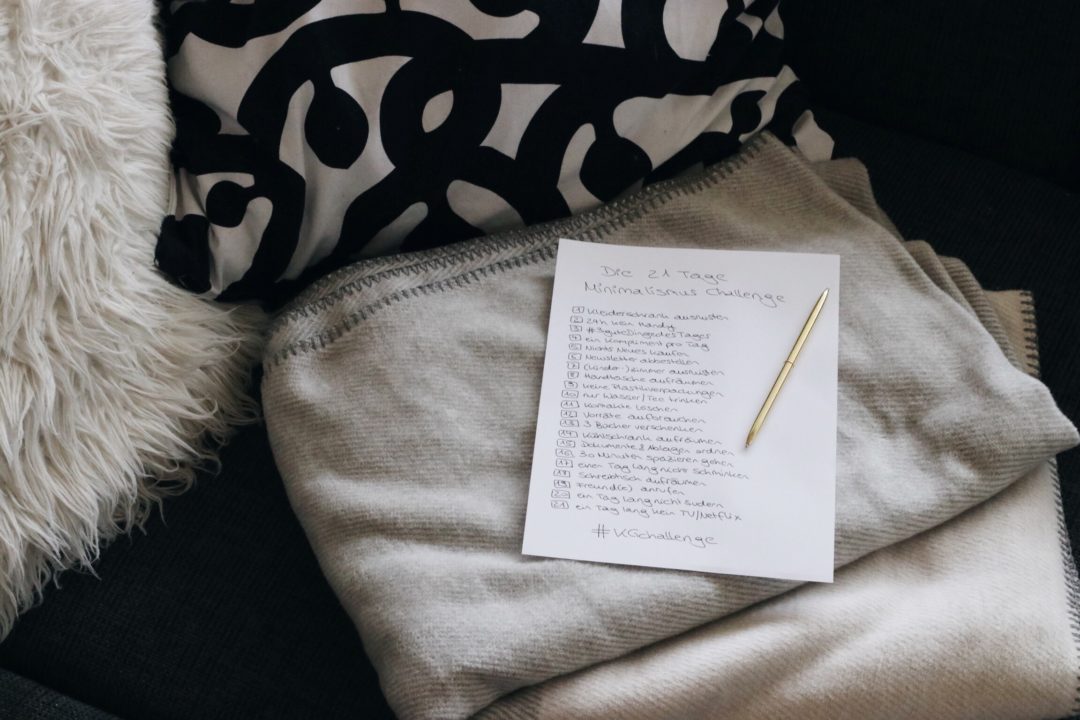 Die 21 Tage
Minimalismus Challenge
1 Kleiderschrank ausmisten
2 24h kein Handy
3 #3guteDingedesTages
4 ein Kompliment pro Tag
5 Nichts Neues kaufen
6 Newsletter abbestellen
7 (Kinder-)Zimmer ausmisten
8 Handtasche aufräumen
9 keine Plastikverpackungen
10 nur Wasser/Tee trinken
11 Kontakte löschen
12 Vorräte aufbrauchen
13 3 Bücher verschenken
14 Kühlschrank aufräumen
15 Dokumente & Ablagen ordnen
16 30 Minuten spazieren gehen
17 einen Tag lang nicht schminken
18 Schreibtisch aufräumen
19 Freund(e) anrufen
20 ein Tag lang nicht sudern
21 ein Tag lang kein TV/Netflix
#KGchallenge